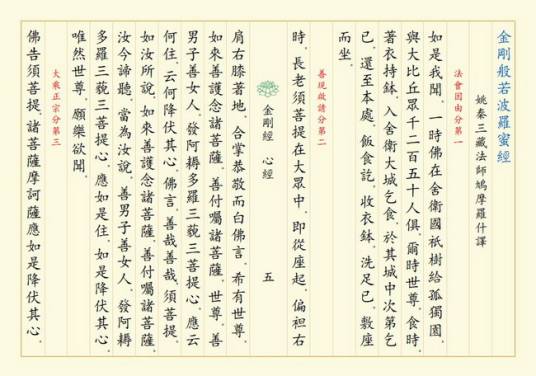 金剛般若波羅蜜經
姚秦三藏法師鳩摩羅什譯
法會因由分第一
如是我聞。一時佛在舍衛國祇樹給孤獨園。
與大比丘眾千二百五十人俱。爾時世尊。食時。
著衣持鉢。入舍衛大城乞食。於其城中次第乞
已。還至本處。飯食訖。收衣鉢。洗足已。敷座
而坐。
善現啟請分第二
時。長老須菩提在大眾中。即從座起。偏袒右
金剛經 心經 五
肩右膝著地。合掌恭敬而白佛言。希有世尊。
如來善護念諸菩薩。善付囑諸菩薩。世尊。善
男子善女人。發阿耨多羅三藐三菩提心。應云
何住。云何降伏其心。佛言。善哉善哉。須菩提。
如汝所說。如來善護念諸菩薩。善付囑諸菩薩。
汝今諦聽。當為汝說。善男子善女人。發阿耨
多羅三藐三菩提心。應如是住。如是降伏其心。
唯然世尊。願樂欲聞。
大乘正宗分第三
佛告須菩提。諸菩薩摩訶薩應如是降伏其心。